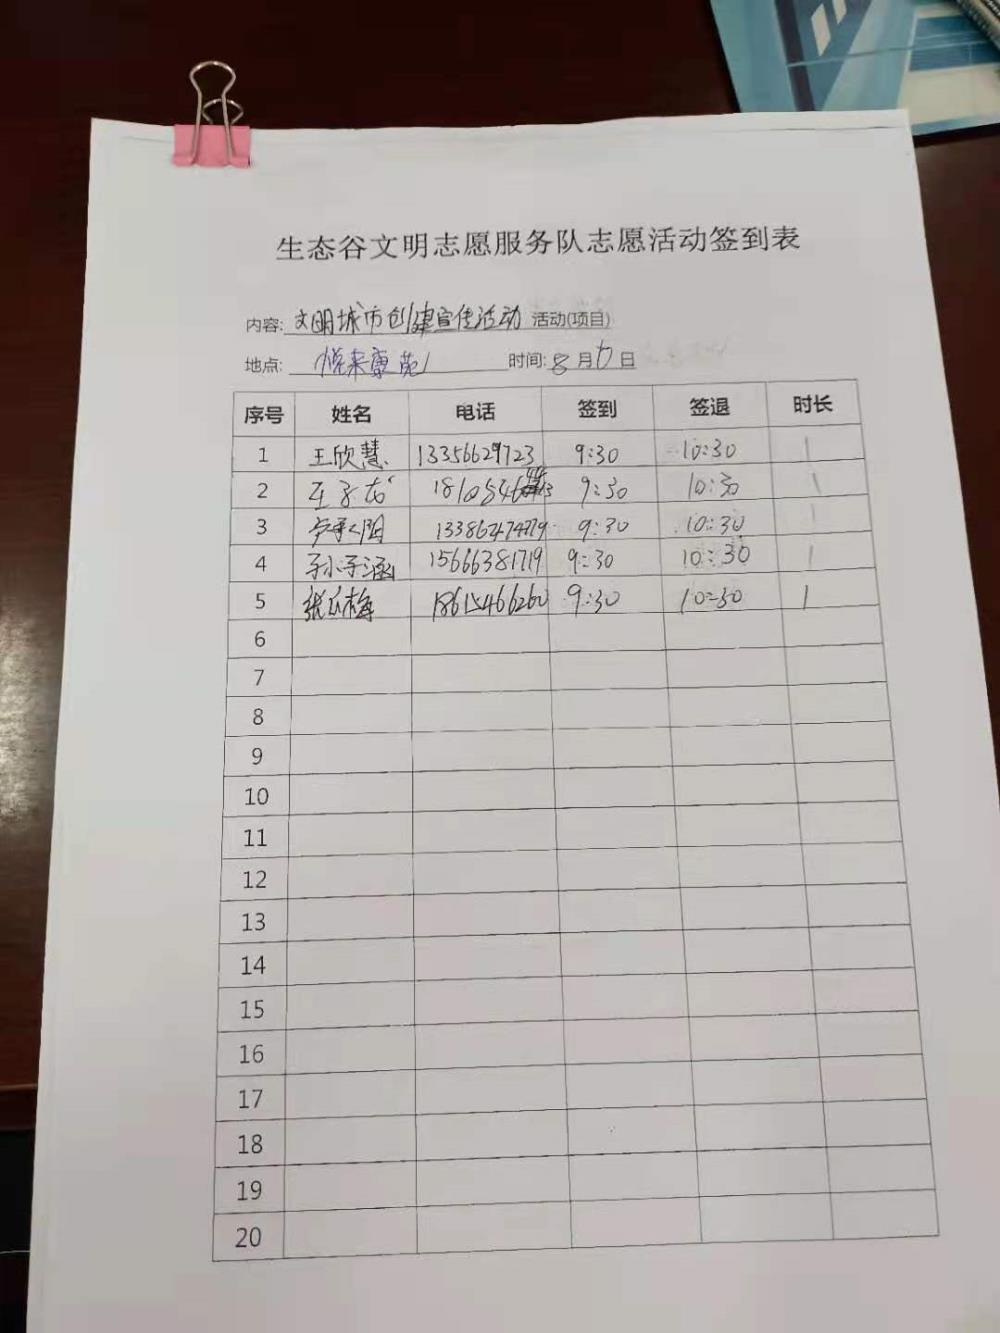 生态谷文明志愿服务队志愿活动签到表
内容: 文明城市创建宣传活动 活动(项目)
地点: 悦来康苑 时间: 8月6日
序号 姓名 电话 签到 签退 时长
1 王欣慧 13356629723 9:30 10:30 1
2 9:30 10:30 1
3 13386474779 9:30 10:30 1
4 孙子涵 15666381719 9:30 10:30 1
5 18615466260 9:30 10:30 1
6
7
8
9
10
11
12
13
14
15
16
17
18
19
20